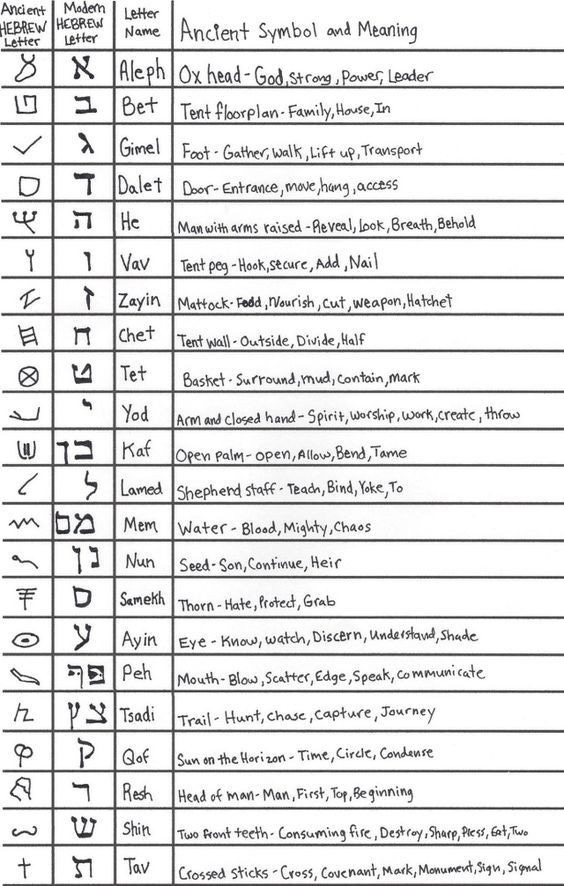 Ancient HEBREW Letter Modern HEBREW Letter Letter Name Ancient Symbol and Meaning
א Aleph Ox head - God, Strong, Power, Leader
ב Bet Tent floorplan - Family, House, In
ג Gimel Foot - Gather, Walk, Lift up, Transport
ד Dalet Door - Entrance, move, hang, access
ה He Man with arms raised - Reveal, Look, Breath, Behold
ו Vav Tent peg - Hook, secure, Add, Nail
ז Zayin Mattock - Food, Nourish, Cut, Weapon, Hatchet
ח Chet Tent wall - Outside, Divide, Half
ט Tet Basket - Surround, mud, Contain, Mark
י Yod Arm and closed hand - Spirit, Worship, Work, Create, throw
כ ך Kaf Open palm - Open, Allow, Bend, Tame
ל Lamed Shepherd staff - Teach, Bind, Yoke, To
מ ם Mem Water - Blood, Mighty, Chaos
נ ן Nun Seed - Son, Continue, Heir
ס Samekh Thorn - Hate, Protect, Grab
ע Ayin Eye - Know, Watch, Discern, Understand, Shade
פ ף Peh Mouth - Blow, Scatter, Edge, Speak, Communicate
צ ץ Tsadi Trail - Hunt, Chase, Capture, Journey
ק Qof Sun on the Horizon - Time, Circle, Condense
ר Resh Head of man - Man, First, Top, Beginning
ש Shin Two front teeth - Consuming fire, Destroy, Sharp, Press, Eat, Two
ת Tav Crossed sticks - Cross, Covenant, Mark, Monument, Sign, Signal